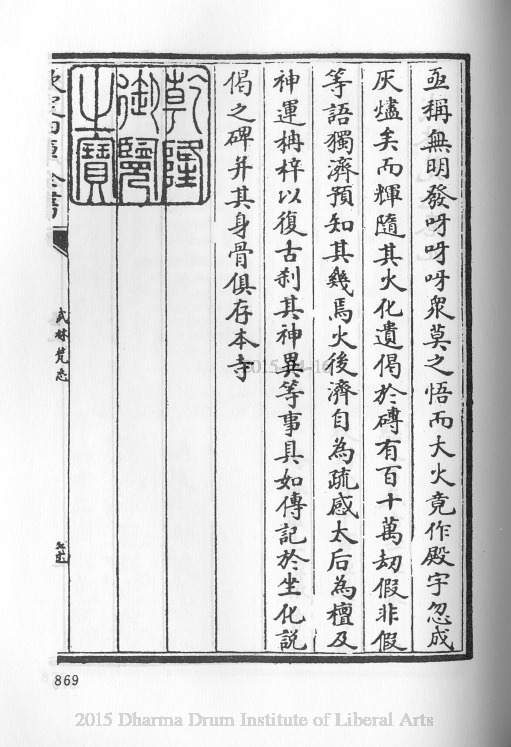 亟稱無明發呀呀呀衆莫之悟而大火竟作殿宇忽成
灰燼矣而輝隨其火化遺偈於磚有百十萬劫假非假
等語獨濟預知其幾焉火後濟自為疏感太后為檀及
神運栴梓以復古刹其神異等事具如傳記於坐化説
偈之碑并其身骨俱存本寺
乾隆
御覽
之寶
欽定四庫全書
武林梵志
2015-04-16
869
2015 Dharma Drum Institute of Liberal Arts